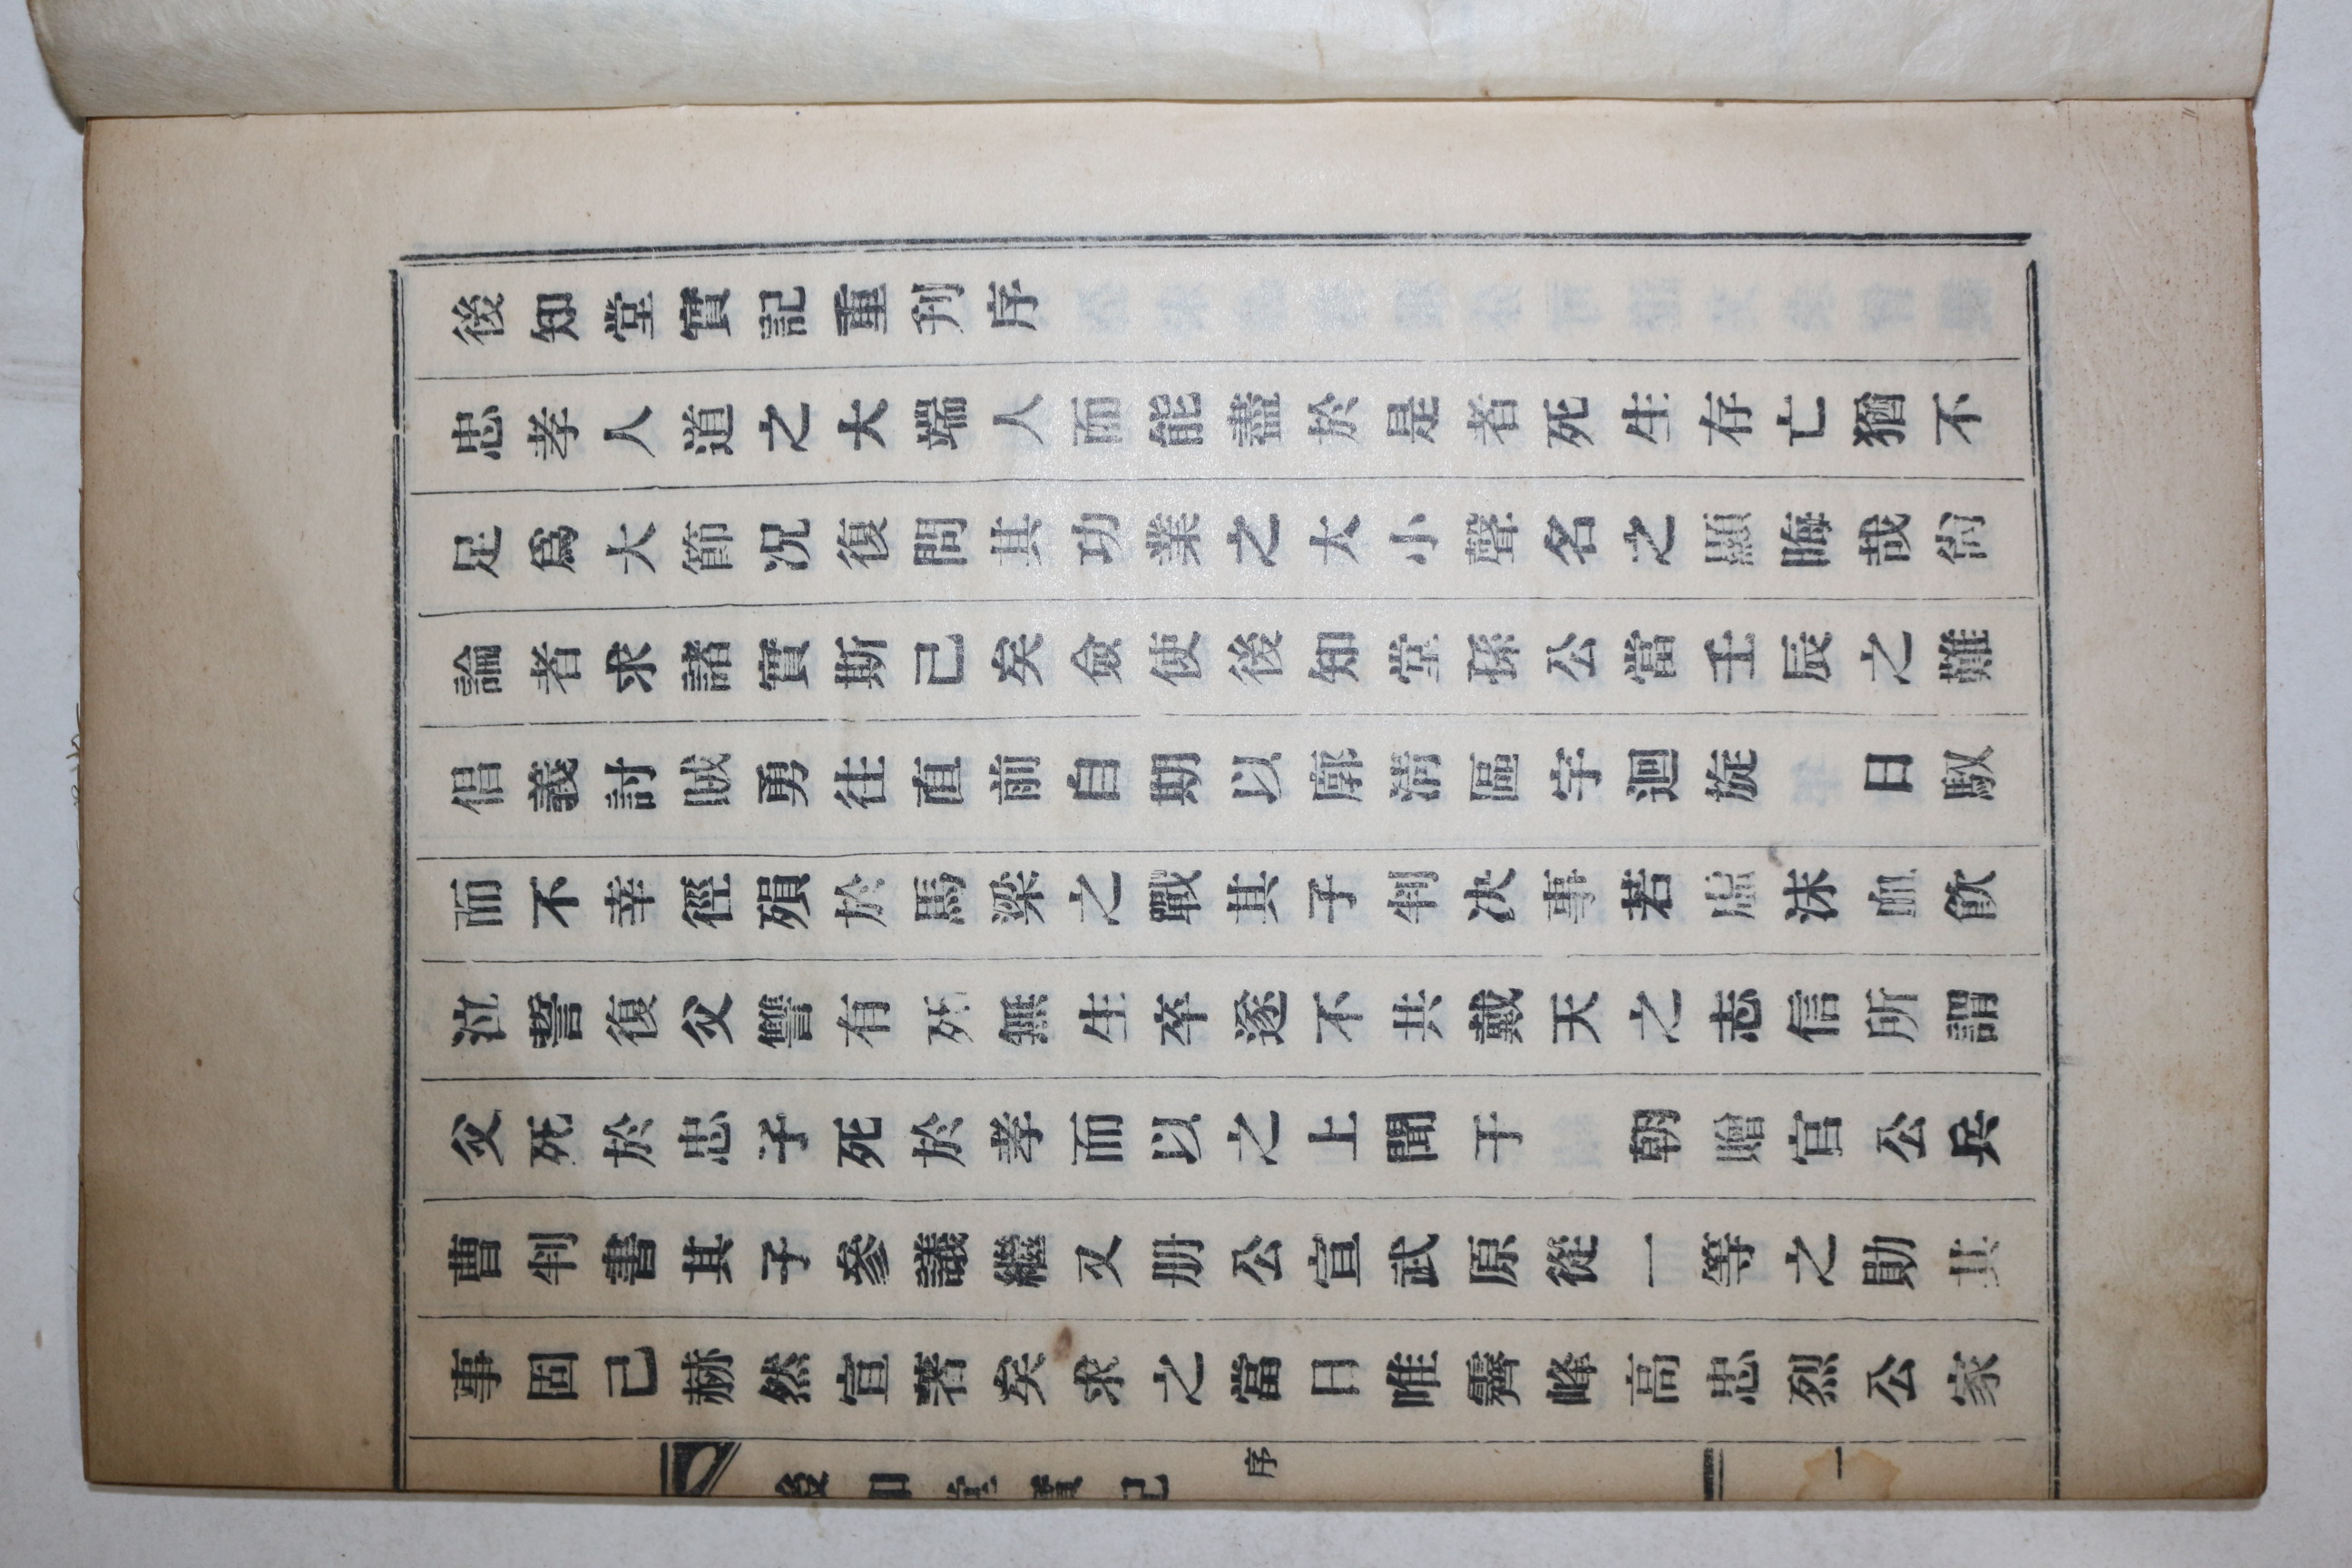 後知堂實記重刊序
忠孝人道之大端人而能盡於是者死生存亡猶不
足爲大節况復問其功業之大小聲名之顯晦哉尙
論者求諸實斯已矣僉使後知堂孫公當壬辰之難
倡義討賊勇往直前自期以廓淸區宇迴旋 日馭
而不幸徑殞於馬梁之戰其子判决事若虛沫血飮
泣誓復父讐有死無生卒遂不共戴天之志信所謂
父死於忠子死於孝而以之上聞于 朝贈官公兵
曹判書其子參議繼又册公宣武原從一等之勛其
事固已赫然宣著矣求之當日唯霽峰高忠烈公家
後知堂實記 序 一